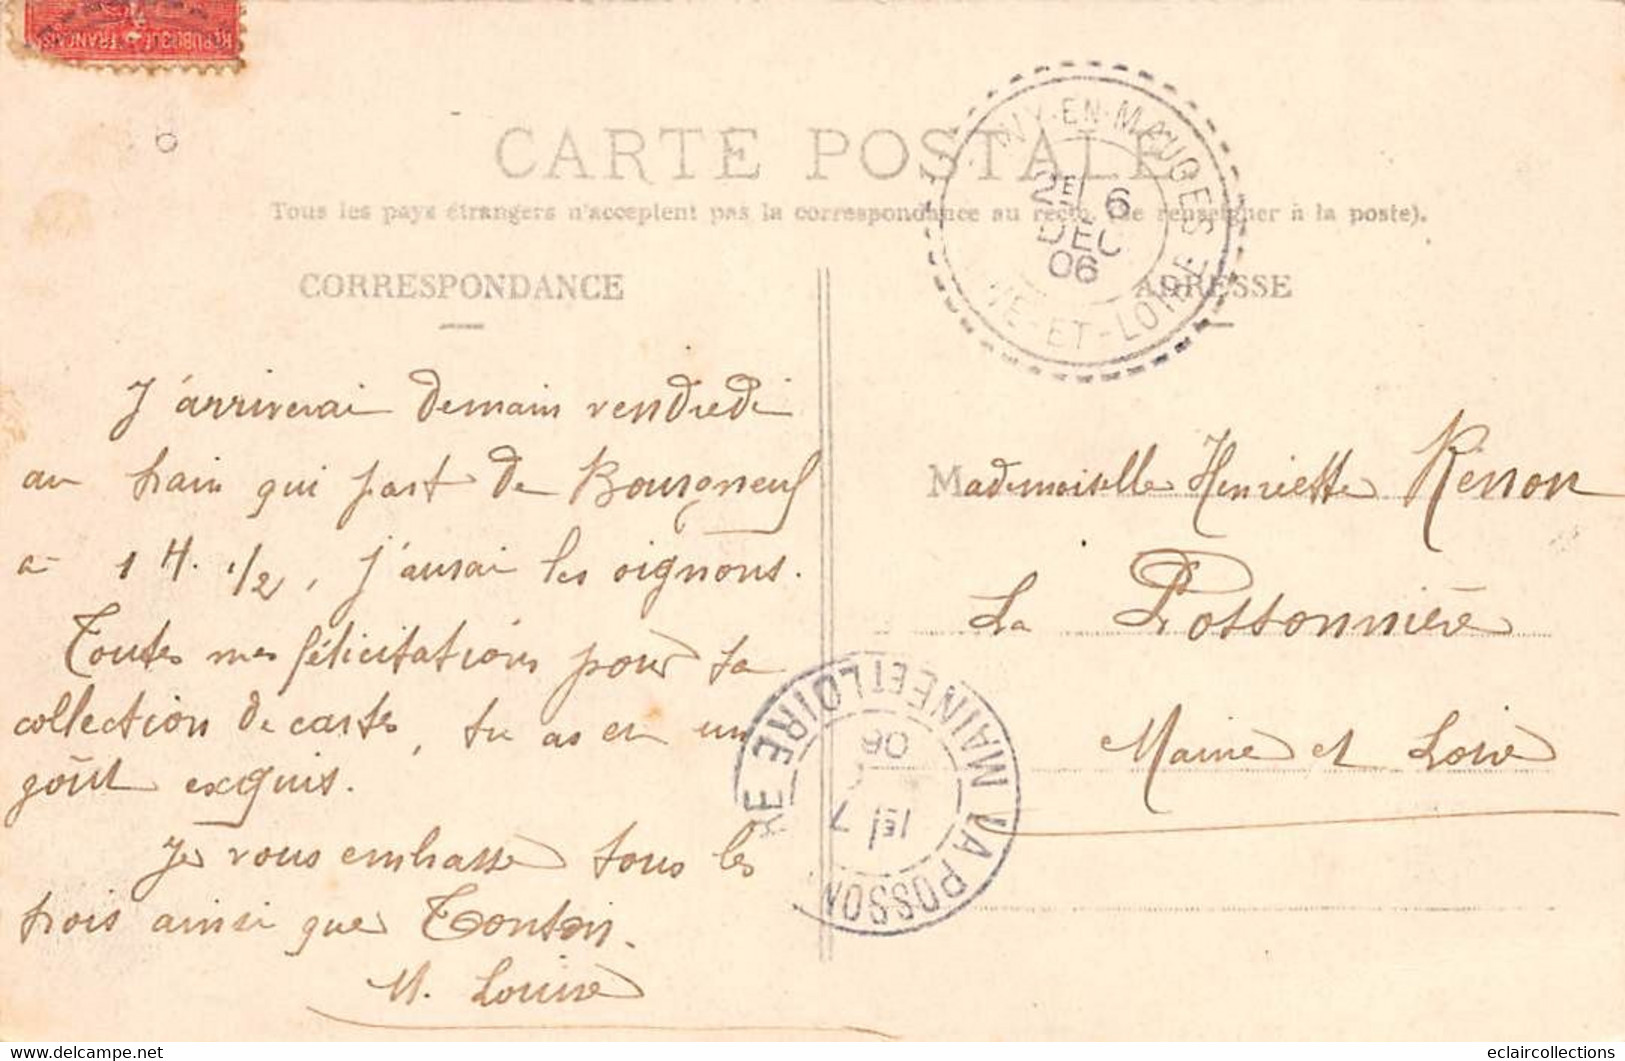 REPUBLIQUE FRANCAIS
CARTE POSTALE
Tous les pays étrangers n'acceptent pas la correspondance au recto. (Se renseigner à la poste).
NY-EN-MAUGES
2E 6
DEC
06
NE-ET-LOIRE
CORRESPONDANCE
J'arriverai demain vendredi
au train qui part de Bourgneuf
à 1 H. 1/2, j'aurai les oignons.
Toutes mes félicitations pour ta
collection de cartes, tu as eu un
goût exquis.
Je vous embrasse tous les
trois ainsi que Tonton.
M. Louise
ADRESSE
Mademoiselle Henriette Renon
La Possonnière
Maine et Loire
LA POSSON RE
MAINE ET LOIRE
1E 7
06
eclaircollections